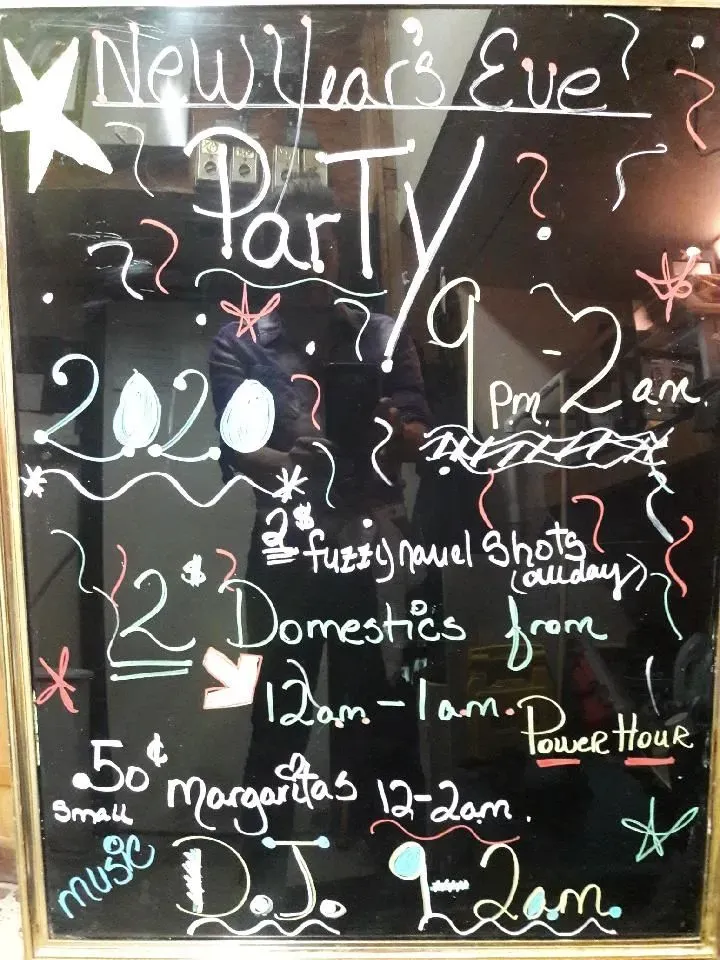 New Year's Eve
Party
9 pm - 2 am.
2020
2$ fuzzy navel Shots
(all day)
2$ Domestics from
12am - 1am.
Power Hour
.50¢ Margaritas 12-2am.
Small
music D.J. 9-2am.